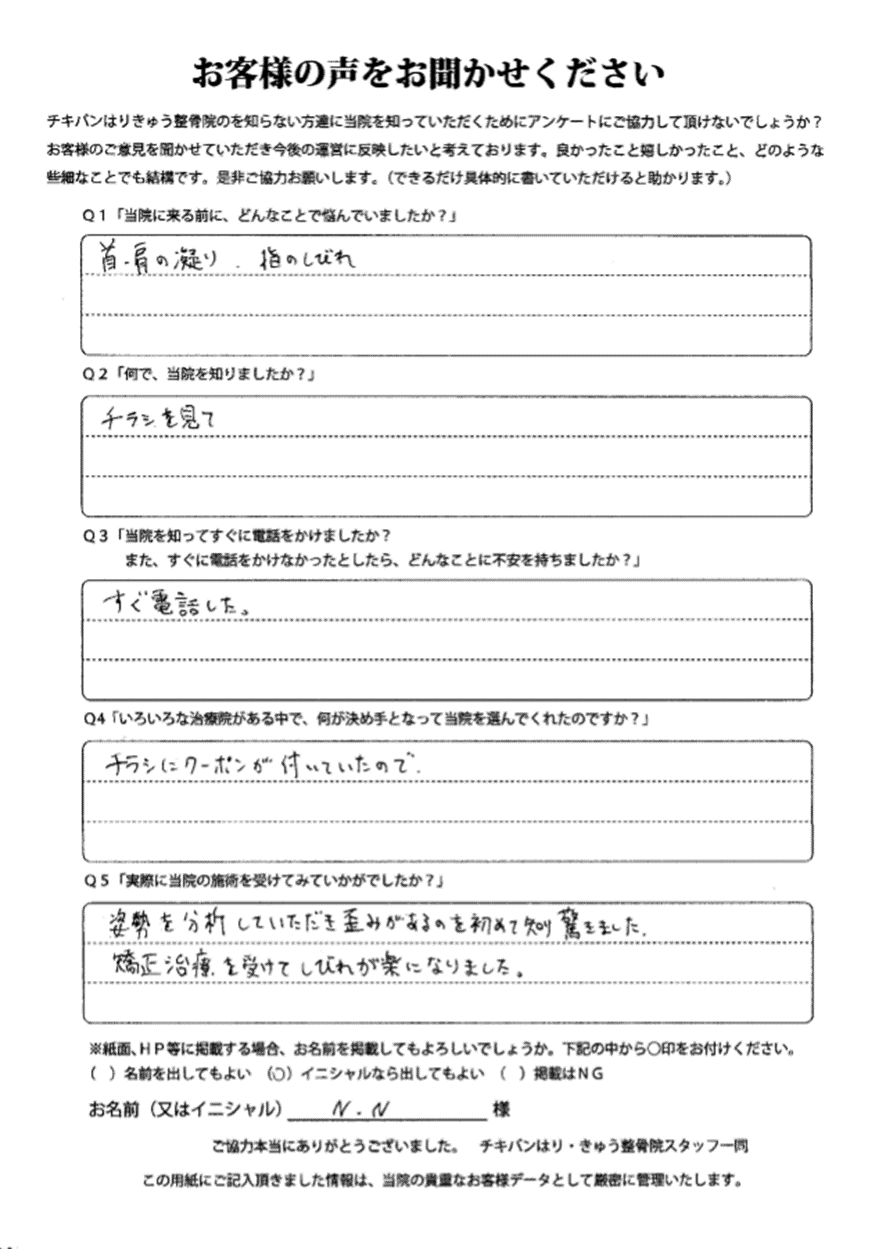 お客様の声をお聞かせください
チキバンはりきゅう整骨院のを知らない方達に当院を知っていただくためにアンケートにご協力して頂けないでしょうか？
お客様のご意見を聞かせていただき今後の運営に反映したいと考えております。良かったこと嬉しかったこと、どのような
些細なことでも結構です。是非ご協力お願いします。（できるだけ具体的に書いていただけると助かります。）
Q１「当院に来る前に、どんなことで悩んでいましたか？」
首・肩の凝り．指のしびれ
Q２「何で、当院を知りましたか？」
チラシを見て
Q３「当院を知ってすぐに電話をかけましたか？
また、すぐに電話をかけなかったとしたら、どんなことに不安を持ちましたか？」
すぐ電話した。
Q4「いろいろな治療院がある中で、何が決め手となって当院を選んでくれたのですか？」
チラシにクーポンが付いていたので．
Q５「実際に当院の施術を受けてみていかがでしたか？」
姿勢を分析していただき歪みがあるのを初めて知り驚きました．
矯正治療を受けてしびれが楽になりました。
※紙面、ＨＰ等に掲載する場合、お名前を掲載してもよろしいでしょうか。下記の中から〇印をお付けください。
（ ）名前を出してもよい （〇）イニシャルなら出してもよい （ ）掲載はＮＧ
お名前（又はイニシャル） N．N 様
ご協力本当にありがとうございました。 チキバンはり・きゅう整骨院スタッフ一同
この用紙にご記入頂きました情報は、当院の貴重なお客様データとして厳密に管理いたします。